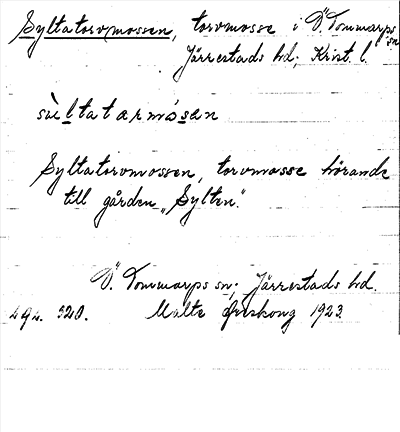 Syltatorvmossen, torvmosse i Ö. Tommarps sn
Järrestads hd; Krist. l.
Syltatorvmossen, torvmosse hörande
till gården „Sylten".
Ö. Tommarps sn; Järrestads hd.
Malte 1923.